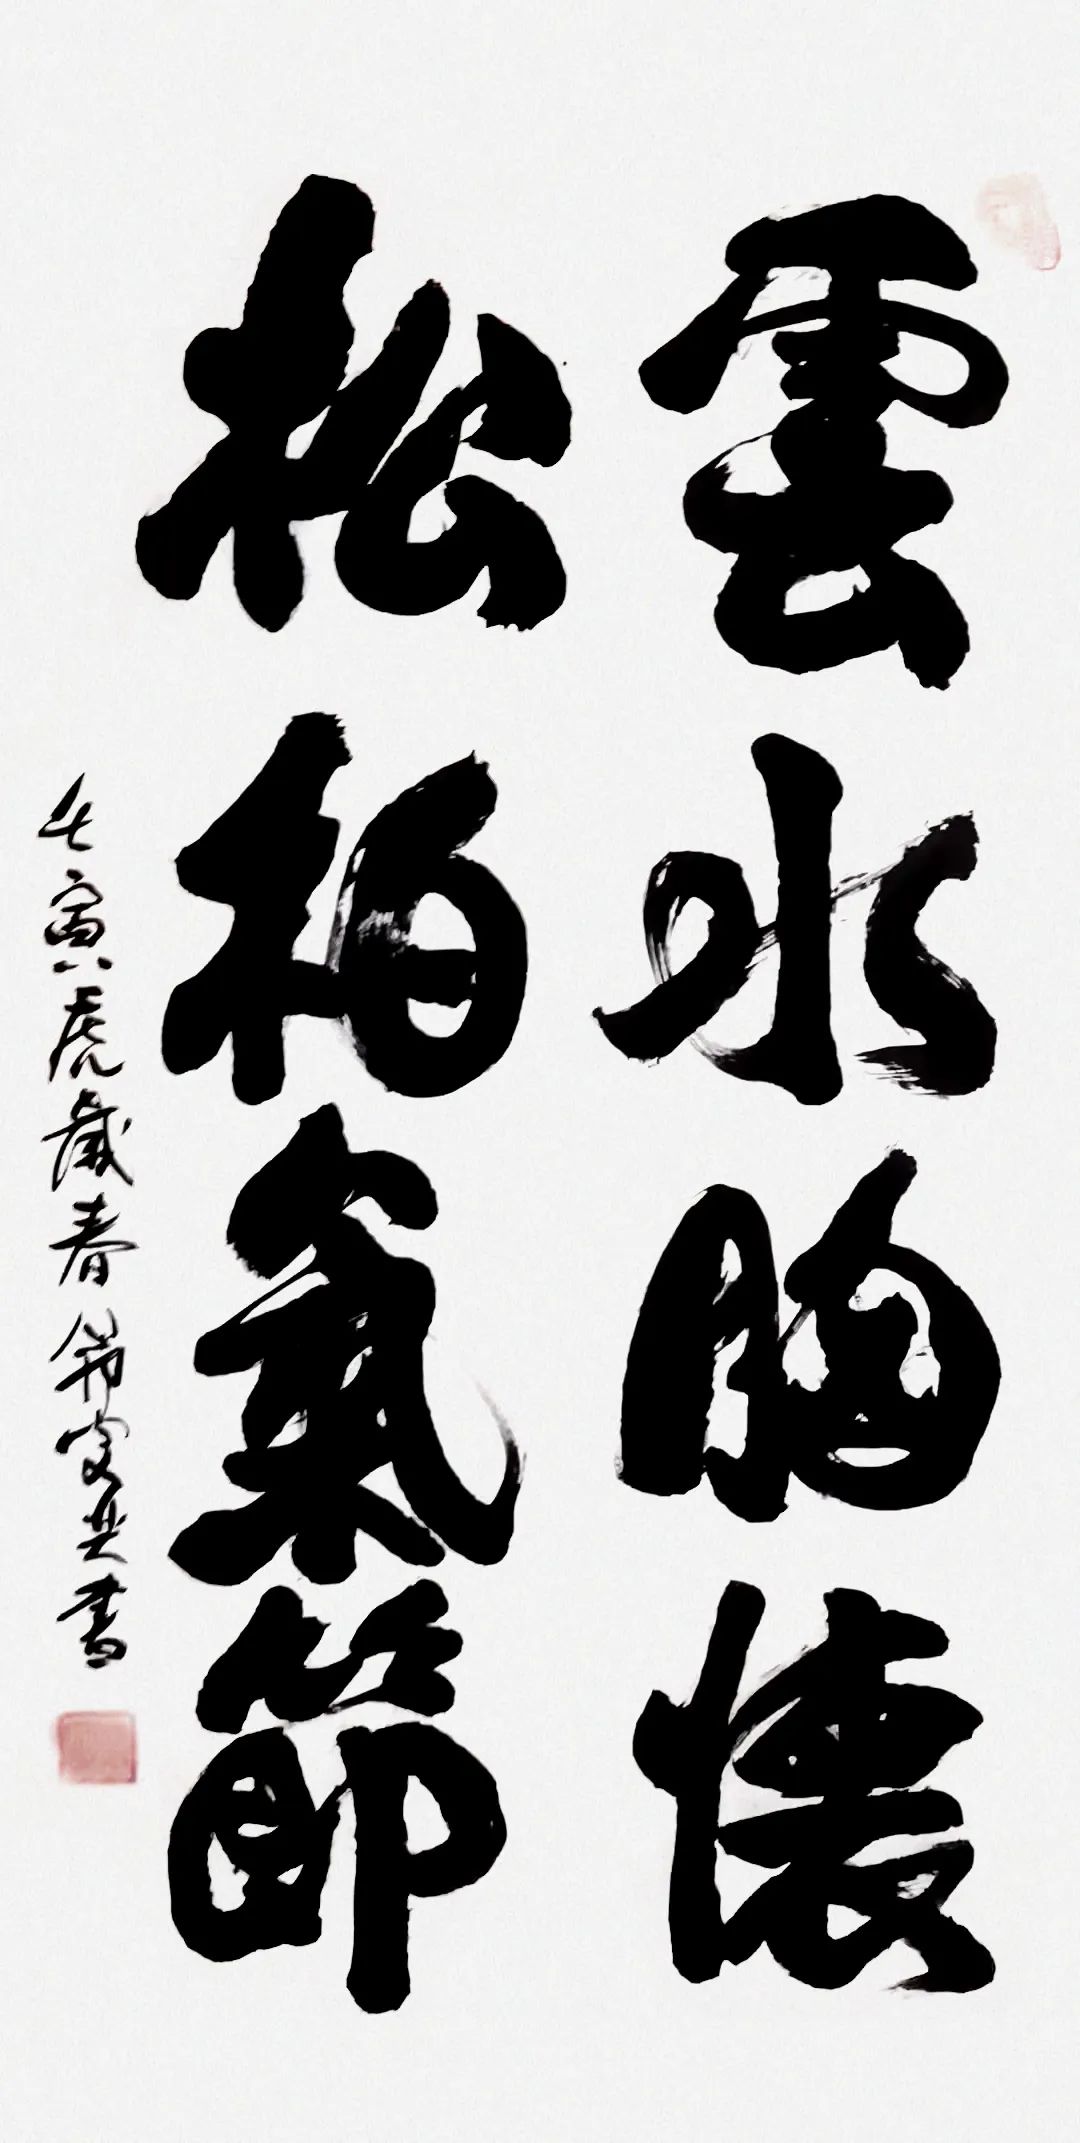 雲水胸懷
松柏氣節
壬寅虎歲春節安共書